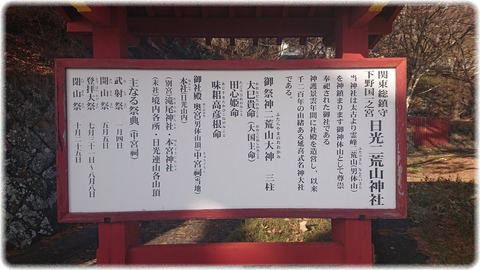 関東総鎮守
下野国一之宮
日光二荒山神社
当神社は太古より霊峰二荒山(男体山)
を神鎮まります御神体山として尊崇
奉祀された御社である
神護景雲年間に社殿を造営し、以来
千二百年の由緒ある延喜式名神大社
である。
御祭神 二荒山大神 三柱
ふたらやまのおおかみ
大己貴命(大国主命)
田心姫命
味耜高彦根命
御社殿 奥宮(男体山頂)中宮祠(当地)
本社(日光山内)
(別宮)滝尾神社・本宮神社
(末社)境内各所・日光連山各山頂
主なる祭典(中宮祠)
武射祭 一月四日
開山祭 五月五日
登拝大祭 七月三十一日〜八月八日
閉山祭 十月二十五日